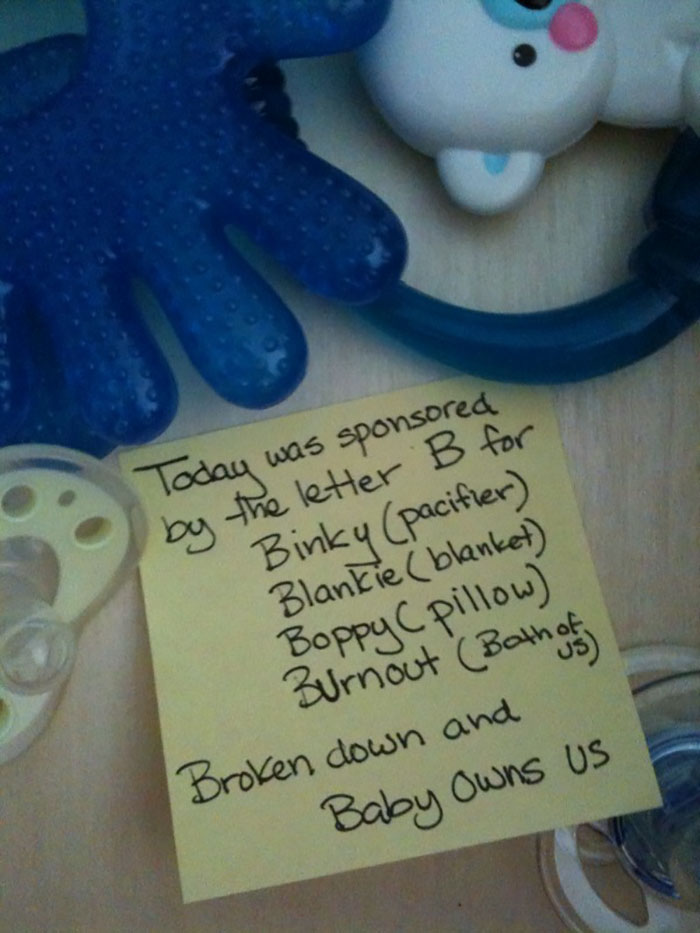 Today was sponsored
by the letter B for
Binky (pacifier)
Blankie (blanket)
Boppy (pillow)
Burnout (Both of
us)
Broken down and
Baby Owns us